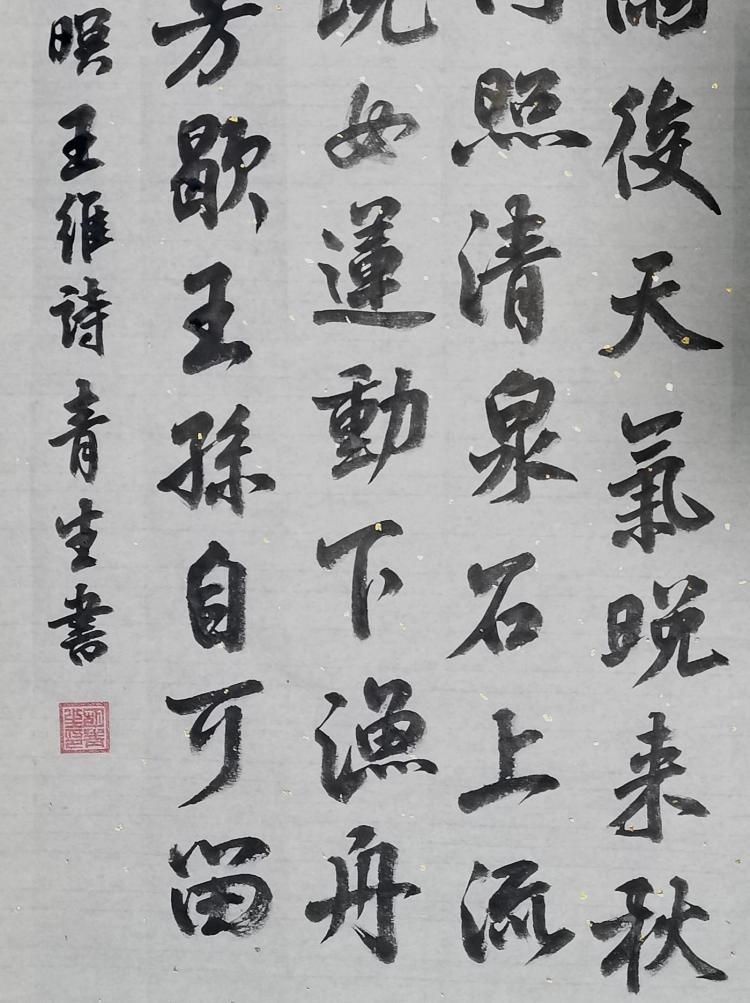 雨後天氣晚来秋
照清泉石上流
浣女蓮動下漁舟
芳歇王孫自可留
暝王維詩青生書